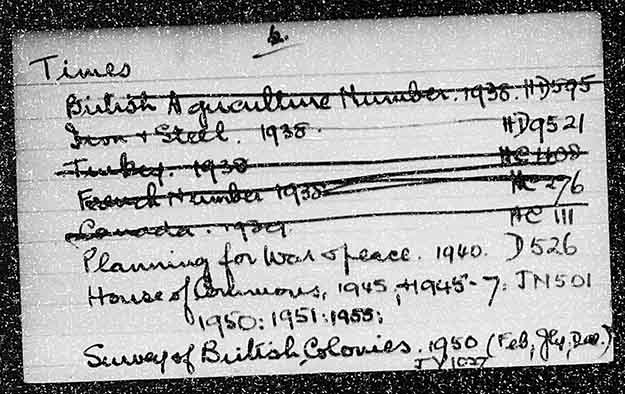 6.
Times
British Agriculture Number. 1938. HD595
Iron & Steel. 1938. HD9521
Turkey. 1938 HC408
French Number 1938 HC276
Canada. 1939. HC111
Planning for War & peace. 1940. D526
House of Commons, 1945, +1945-7: JN501
1950: 1951: 1955:
Survey of British Colonies. 1950 (Feb, Jly, Dec.)
JV1027